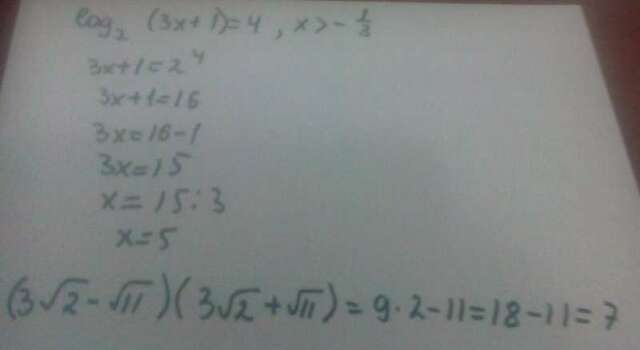 log₂ (3x+1)=4 , x>-1/3
3x+1=2⁴
3x+1=16
3x=16-1
3x=15
x=15:3
x=5
(3√2-√11)(3√2+√11)=9·2-11=18-11=7